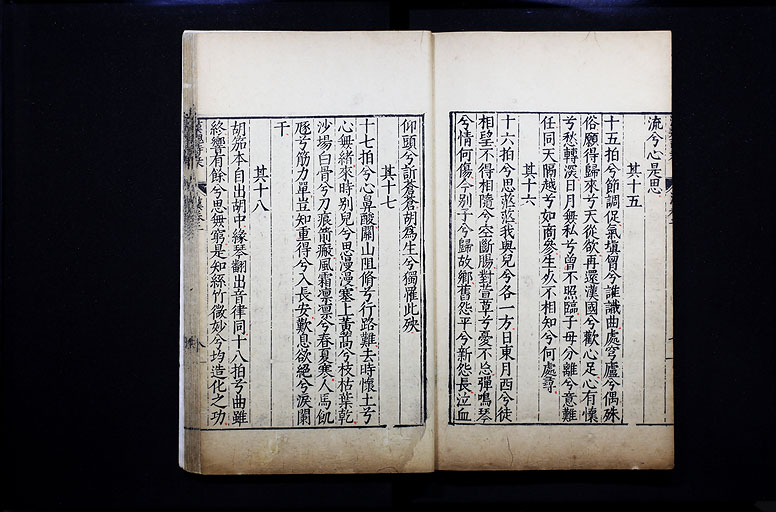 流兮心是思
其十五
十五拍兮節調促氣塡胷兮誰識曲處穹廬兮偶殊
俗願得歸來兮天從欲再還漢國兮歡心足心有懷
兮愁轉深日月無私兮曾不照臨子母分離兮意難
任同天隔越兮如商參生死不相知兮何處尋
其十六
十六拍兮思茫茫我與兒兮各一方日東月西兮徒
相望不得相隨兮空斷腸對萱草兮憂不忘彈鳴琴
兮情何傷今别子兮歸故鄉舊怨平兮新怨長泣血
仰頭兮訴蒼蒼胡爲生兮獨罹此殃
其十七
十七拍兮心鼻酸關山阻脩兮行路難去時懷土兮
心無緒來時别兒兮思漫漫塞上黃蒿兮枝枯葉乾
沙場白骨兮刀痕箭瘢風霜凛凛兮春夏寒人馬飢
豗兮筋力單豈知重得兮入長安歎息欲絕兮淚闌
干
其十八
胡笳本自出胡中緣琴翻出音律同十八拍兮曲雖
終響有餘兮思無窮是知絲竹微妙兮均造化之功